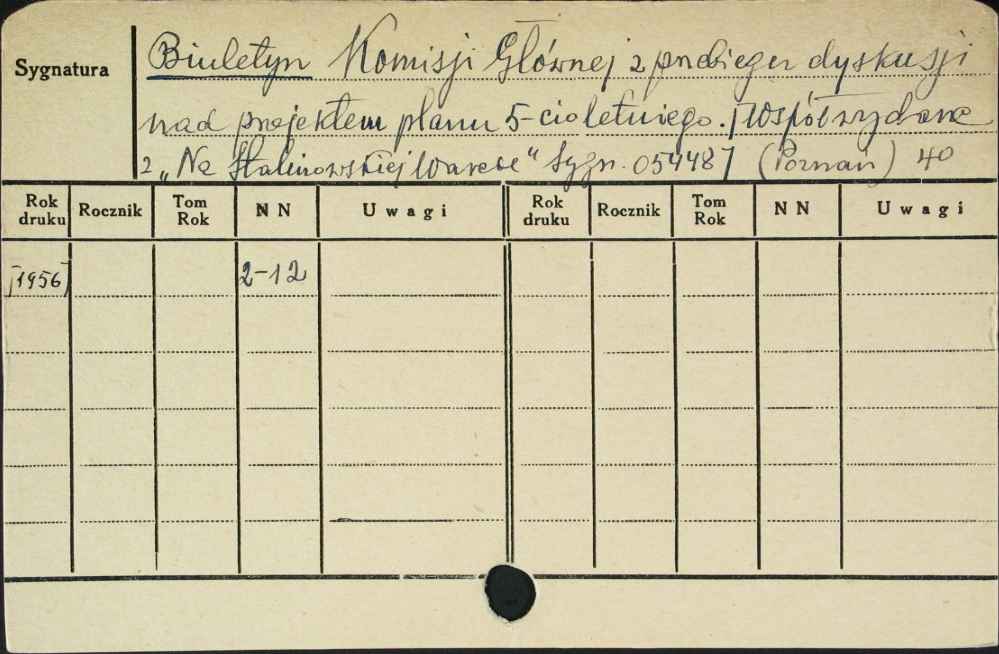 Sygnatura
Biuletyn Komisji Głównej z przebiegu dyskusji
nad projektem planu 5-cioletniego. [Współwydane
z „Na Stalinowskiej Warcie" Sygn. 054487] (Poznań) 40
Rok druku Rocznik Tom Rok NN Uwagi Rok druku Rocznik Tom Rok NN Uwagi
[1956] 2-12